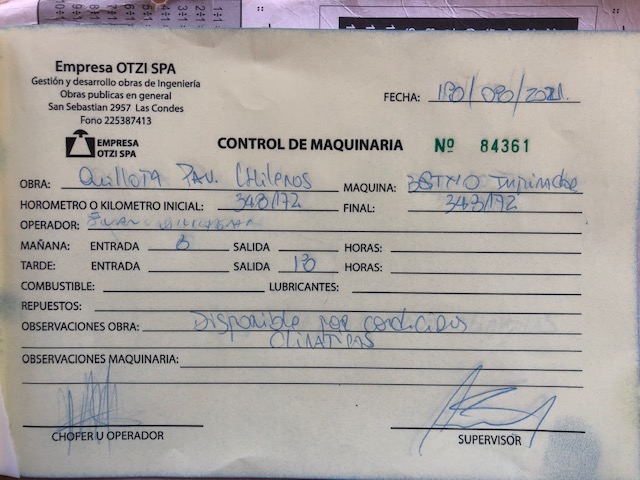 Empresa OTZI SPA
Gestión y desarrollo obras de Ingeniería
Obras publicas en general
San Sebastian 2957 Las Condes
Fono 225387413
EMPRESA
OTZI SPA
CONTROL DE MAQUINARIA
Nº 84361
FECHA:
OBRA: Quillota Pav Chilenos MAQUINA:
HOROMETRO O KILOMETRO INICIAL: FINAL:
OPERADOR: Juan
MAÑANA: ENTRADA 8 SALIDA 13 HORAS:
TARDE: ENTRADA SALIDA HORAS:
COMBUSTIBLE: LUBRICANTES:
REPUESTOS:
OBSERVACIONES OBRA: Disponible por condiciones
climaticas
OBSERVACIONES MAQUINARIA:
CHOFER U OPERADOR SUPERVISOR